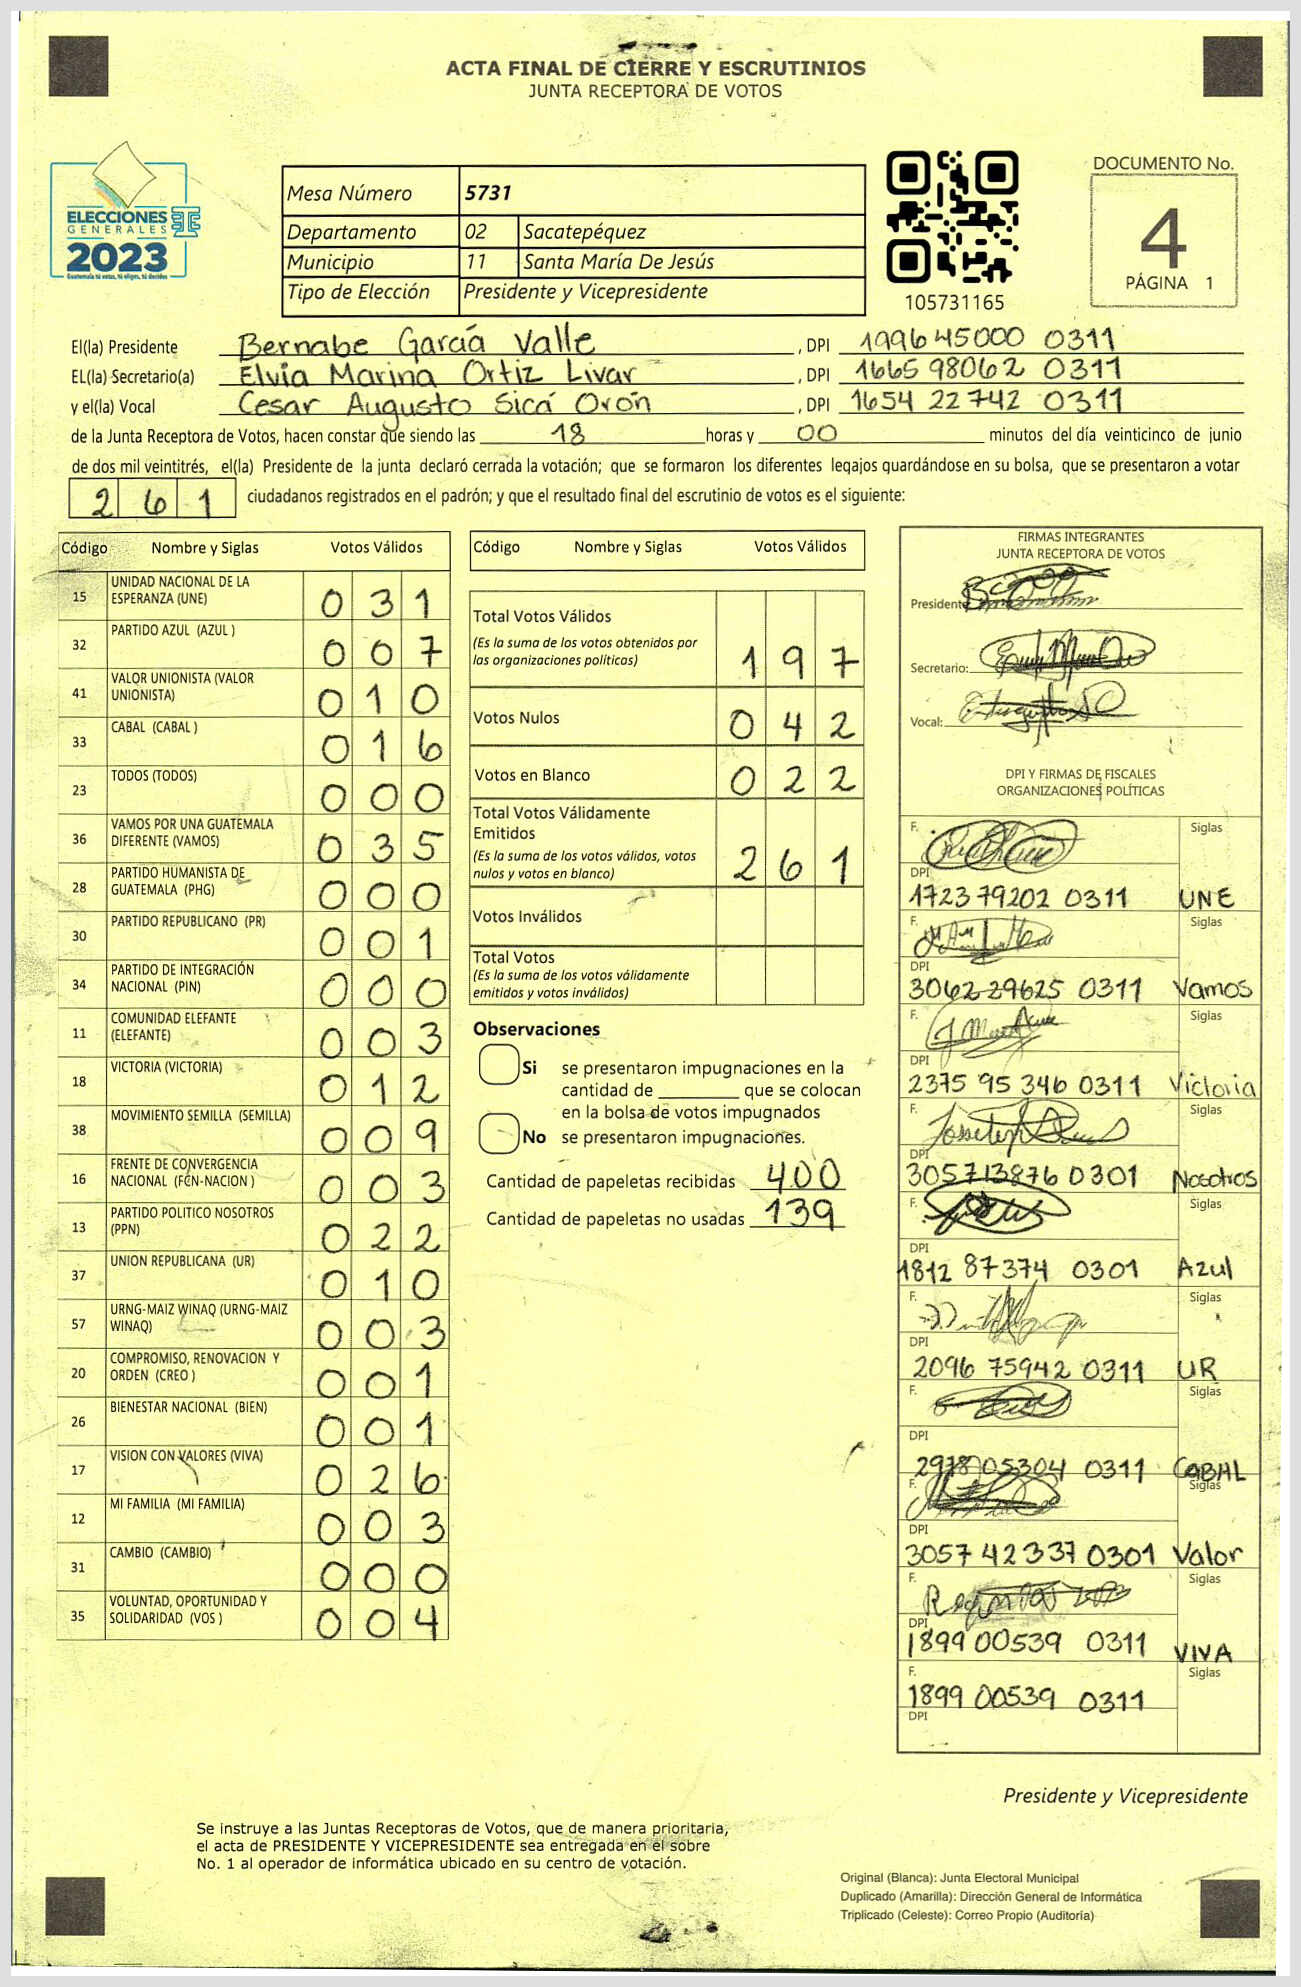 ACTA FINAL DE CIERRE Y ESCRUTINIOS
JUNTA RECEPTORA DE VOTOS
ELECCIONES
GENERALES
2023
Guatemala tú votas, tú eliges, tú decides
Mesa Número 5731
Departamento 02 Sacatepéquez
Municipio 11 Santa María De Jesús
Tipo de Elección Presidente y Vicepresidente
105731165
DOCUMENTO No.
4
PÁGINA 1
El(la) Presidente Bernabe García Valle , DPI 1996 45000 0311
EL(la) Secretario(a) Elvia Marina Ortiz Livar , DPI 1665 98062 0311
y el(la) Vocal Cesar Augusto Sicá Orón , DPI 1654 22742 0311
de la Junta Receptora de Votos, hacen constar que siendo las 18 horas y 00 minutos del día veinticinco de junio
de dos mil veintitrés, el(la) Presidente de la junta declaró cerrada la votación; que se formaron los diferentes legajos guardándose en su bolsa, que se presentaron a votar
261 ciudadanos registrados en el padrón; y que el resultado final del escrutinio de votos es el siguiente:
Código Nombre y Siglas Votos Válidos
15 UNIDAD NACIONAL DE LA ESPERANZA (UNE) 031
32 PARTIDO AZUL (AZUL ) 007
41 VALOR UNIONISTA (VALOR UNIONISTA) 010
33 CABAL (CABAL ) 016
23 TODOS (TODOS) 000
36 VAMOS POR UNA GUATEMALA DIFERENTE (VAMOS) 035
28 PARTIDO HUMANISTA DE GUATEMALA (PHG) 000
30 PARTIDO REPUBLICANO (PR) 001
34 PARTIDO DE INTEGRACIÓN NACIONAL (PIN) 000
11 COMUNIDAD ELEFANTE (ELEFANTE) 003
18 VICTORIA (VICTORIA) 012
38 MOVIMIENTO SEMILLA (SEMILLA) 009
16 FRENTE DE CONVERGENCIA NACIONAL (FCN-NACION ) 003
13 PARTIDO POLITICO NOSOTROS (PPN) 022
37 UNION REPUBLICANA (UR) 010
57 URNG-MAIZ WINAQ (URNG-MAIZ WINAQ) 003
20 COMPROMISO, RENOVACION Y ORDEN (CREO ) 001
26 BIENESTAR NACIONAL (BIEN) 001
17 VISION CON VALORES (VIVA) 026
12 MI FAMILIA (MI FAMILIA) 003
31 CAMBIO (CAMBIO) 000
35 VOLUNTAD, OPORTUNIDAD Y SOLIDARIDAD (VOS ) 004
Código Nombre y Siglas Votos Válidos
Total Votos Válidos 197
(Es la suma de los votos obtenidos por
las organizaciones políticas)
Votos Nulos 042
Votos en Blanco 022
Total Votos Válidamente
Emitidos 261
(Es la suma de los votos válidos, votos
nulos y votos en blanco)
Votos Inválidos
Total Votos
(Es la suma de los votos válidamente
emitidos y votos inválidos)
Observaciones
Si se presentaron impugnaciones en la
cantidad de ________ que se colocan
en la bolsa de votos impugnados
No se presentaron impugnaciones.
Cantidad de papeletas recibidas 400
Cantidad de papeletas no usadas 139
FIRMAS INTEGRANTES
JUNTA RECEPTORA DE VOTOS
Presidente:
Secretario:
Vocal:
DPI Y FIRMAS DE FISCALES
ORGANIZACIONES POLÍTICAS
F. Siglas
DPI
1723 79202 0311 UNE
F. Siglas
DPI
3062 29625 0311 Vamos
F. Siglas
DPI
2375 95 346 0311 Victoria
F. Siglas
DPI
305713876 0301 Nosotros
F. Siglas
DPI
1812 87374 0301 Azul
F. Siglas
DPI
2096 75942 0311 UR
F. Siglas
DPI
2978 05304 0311 CABAL
F. Siglas
DPI
3057 42337 0301 Valor
F. Siglas
DPI
1899 00539 0311 VIVA
F. Siglas
1899 00539 0311
DPI
Presidente y Vicepresidente
Se instruye a las Juntas Receptoras de Votos, que de manera prioritaria,
el acta de PRESIDENTE Y VICEPRESIDENTE sea entregada en el sobre
No. 1 al operador de informática ubicado en su centro de votación.
Original (Blanca): Junta Electoral Municipal
Duplicado (Amarilla): Dirección General de Informática
Triplicado (Celeste): Correo Propio (Auditoría)